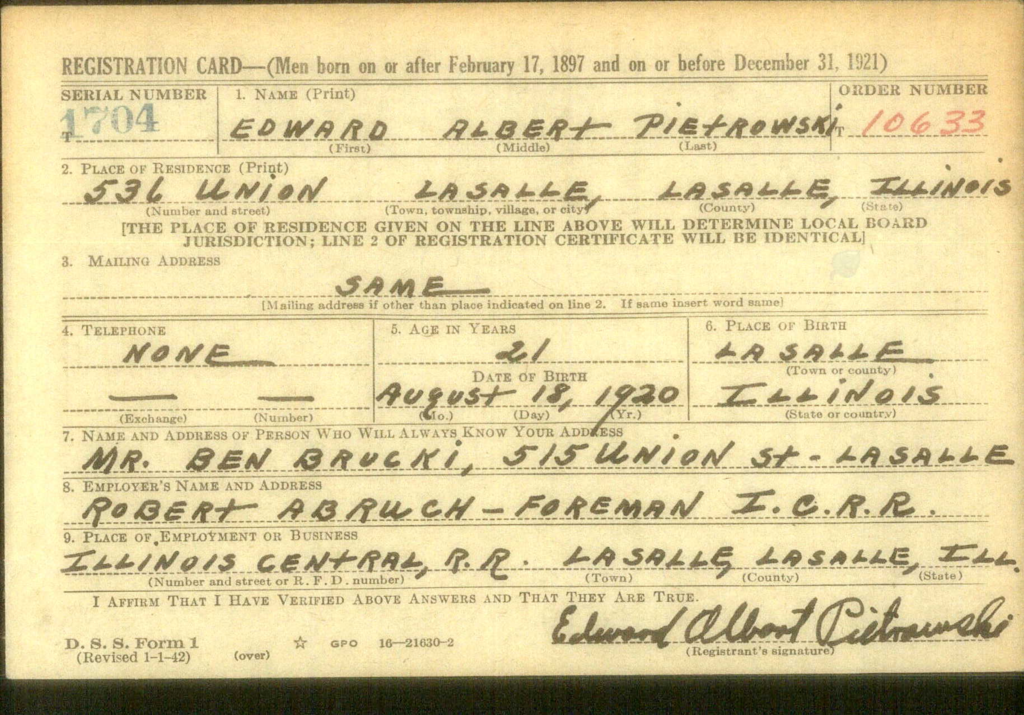 REGISTRATION CARD—(Men born on or after February 17, 1897 and on or before December 31, 1921)
SERIAL NUMBER 1. NAME (Print) ORDER NUMBER
T 1704 EDWARD ALBERT PIETROWSKI T 10633
(First) (Middle) (Last)
2. PLACE OF RESIDENCE (Print)
536 UNION LASALLE, LASALLE, ILLINOIS
(Number and street) (Town, township, village, or city) (County) (State)
[THE PLACE OF RESIDENCE GIVEN ON THE LINE ABOVE WILL DETERMINE LOCAL BOARD
JURISDICTION; LINE 2 OF REGISTRATION CERTIFICATE WILL BE IDENTICAL]
3. MAILING ADDRESS
SAME
[Mailing address if other than place indicated on line 2. If same insert word same]
4. TELEPHONE 5. AGE IN YEARS 6. PLACE OF BIRTH
NONE 21 LASALLE
DATE OF BIRTH (Town or county)
— — AUGUST 18, 1920 ILLINOIS
(Exchange) (Number) (Mo.) (Day) (Yr.) (State or country)
7. NAME AND ADDRESS OF PERSON WHO WILL ALWAYS KNOW YOUR ADDRESS
MR. BEN BRUCKI, 515 UNION St - LASALLE
8. EMPLOYER'S NAME AND ADDRESS
ROBERT ABRUCH - FOREMAN I.C.R.R.
9. PLACE OF EMPLOYMENT OR BUSINESS
ILLINOIS CENTRAL, R.R. LASALLE, LASALLE, ILL.
(Number and street or R. F. D. number) (Town) (County) (State)
I AFFIRM THAT I HAVE VERIFIED ABOVE ANSWERS AND THAT THEY ARE TRUE.
Edward Albert Pietrowski
D. S. S. Form 1 ☆ GPO 16—21630-2 (Registrant's signature)
(Revised 1-1-42) (over)